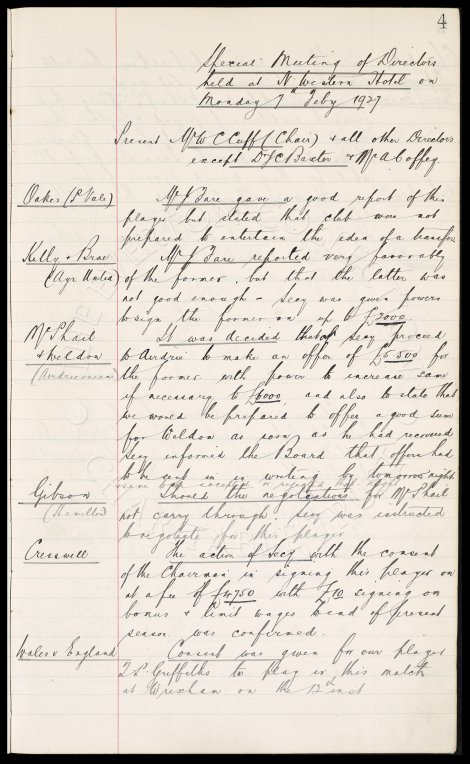 4
Special Meeting of Directors
held at N. Western Hotel on
Monday 7th Feby 1927
Present Mr W C Cuff (Chair) & all other Directors
except Dr J C Baxter & Mr A Coffey.
Oakes (P. Vale) Mr J Fare gave a good report of this
player but stated that club were not
prepared to entertain the idea of a transfer
Kelly & Brae Mr J Fare reported very favorably
(Ayr United) of the former, but that the latter was
not good enough - secy was given powers
to sign the former on up to £2000.
McPhail It was decided that secy proceed
& Weldon to Airdrie to make an offer of £5,500 for
(Airdrieonians) the former with power to increase same
if necessary to £6000 and also to state that
we would be prepared to offer a good sum
for Weldon as soon as he had recovered
secy informed the Board that offers had
to be sent in in writing by tomorrow night
Gibson Should the negotiations for McPhail
(Hamilton) not carry through secy was instructed
to negotiate for this player
Cresswell The action of secy with the consent
of the Chairman in signing this player on
at a fee of £4750 with £10 signing on
bonus & limit wages to end of present
season was confirmed.
Wales v England Consent was given for our player
Griffiths to play in this match
at Wrexham on the 12th inst